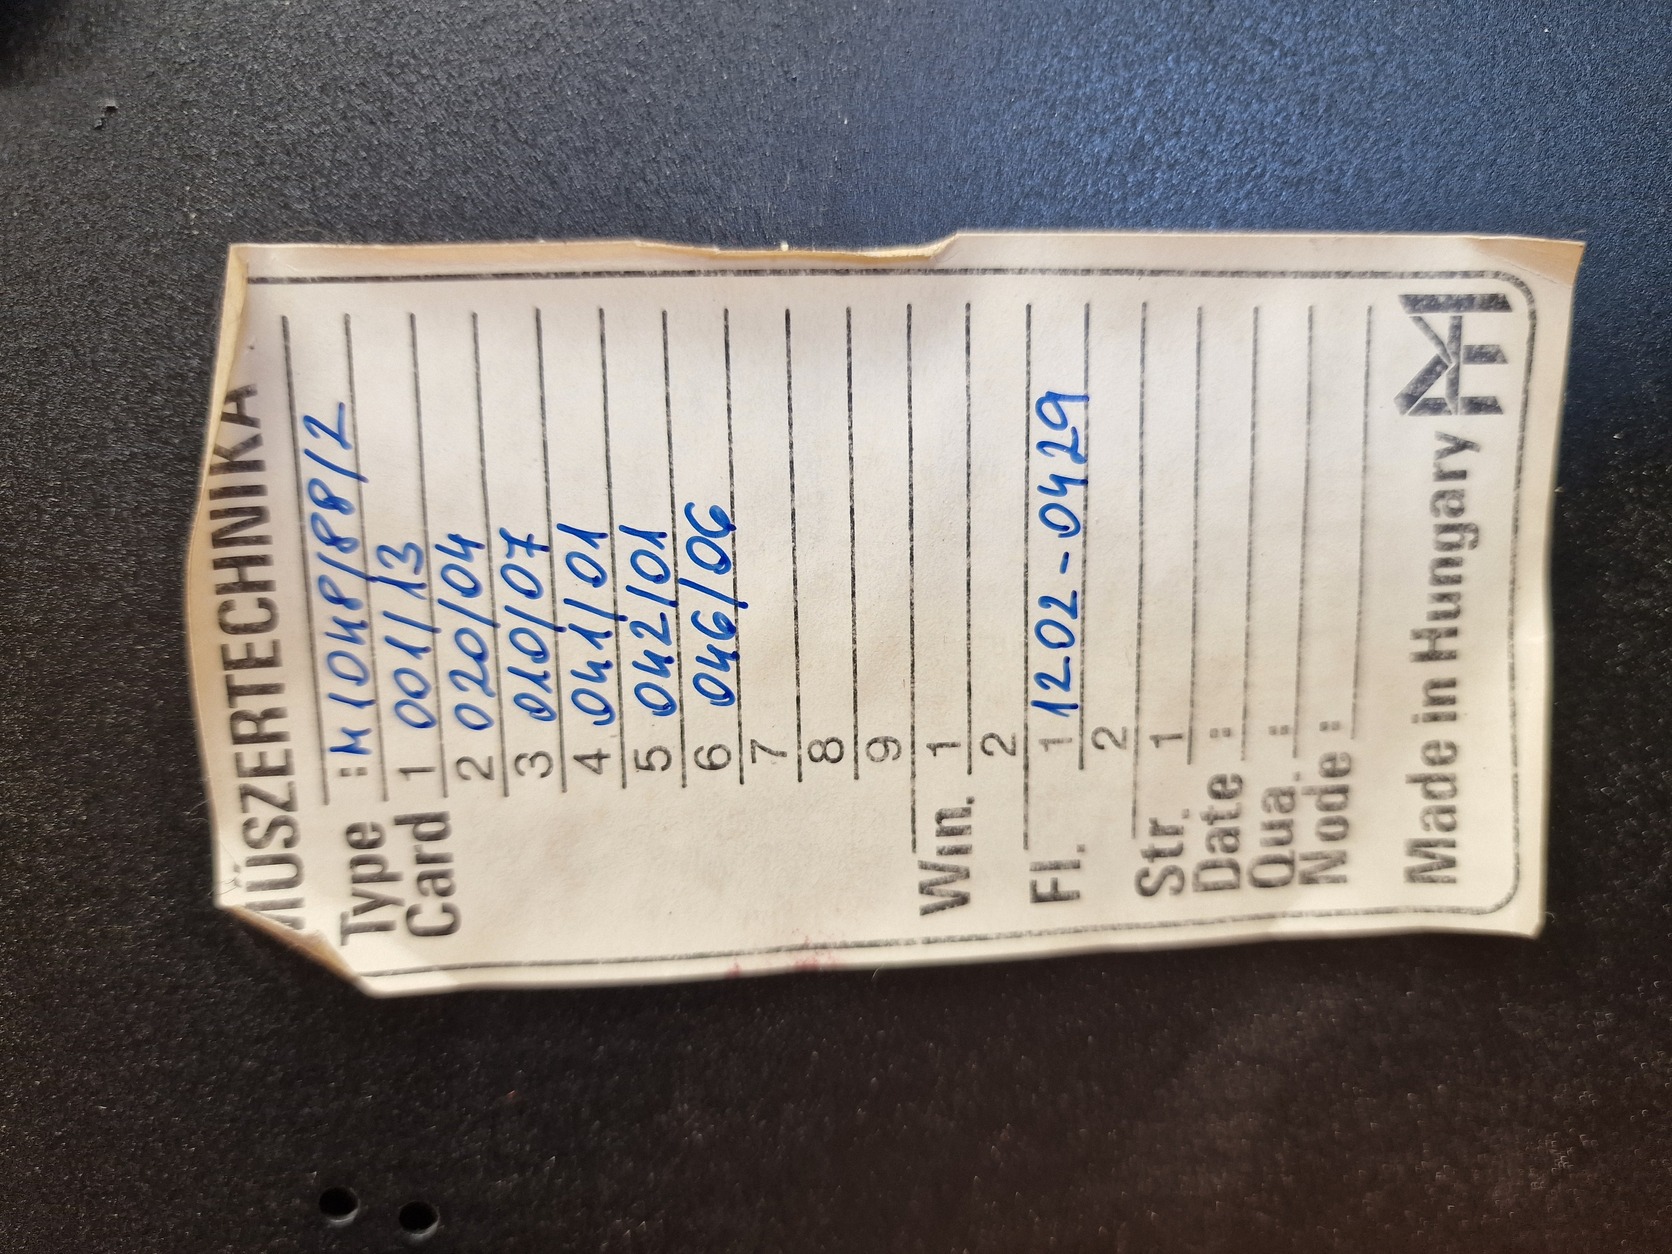 MŰSZERTECHNIKA
Type : M1048/888/2
Card 1 001/13
2 020/04
3 010/07
4 041/01
5 042/01
6 046/06
7
8
9
Win. 1
2
Fl. 1 1202-0429
2
Str. 1
Date :
Qua. :
Node :
Made in Hungary MT